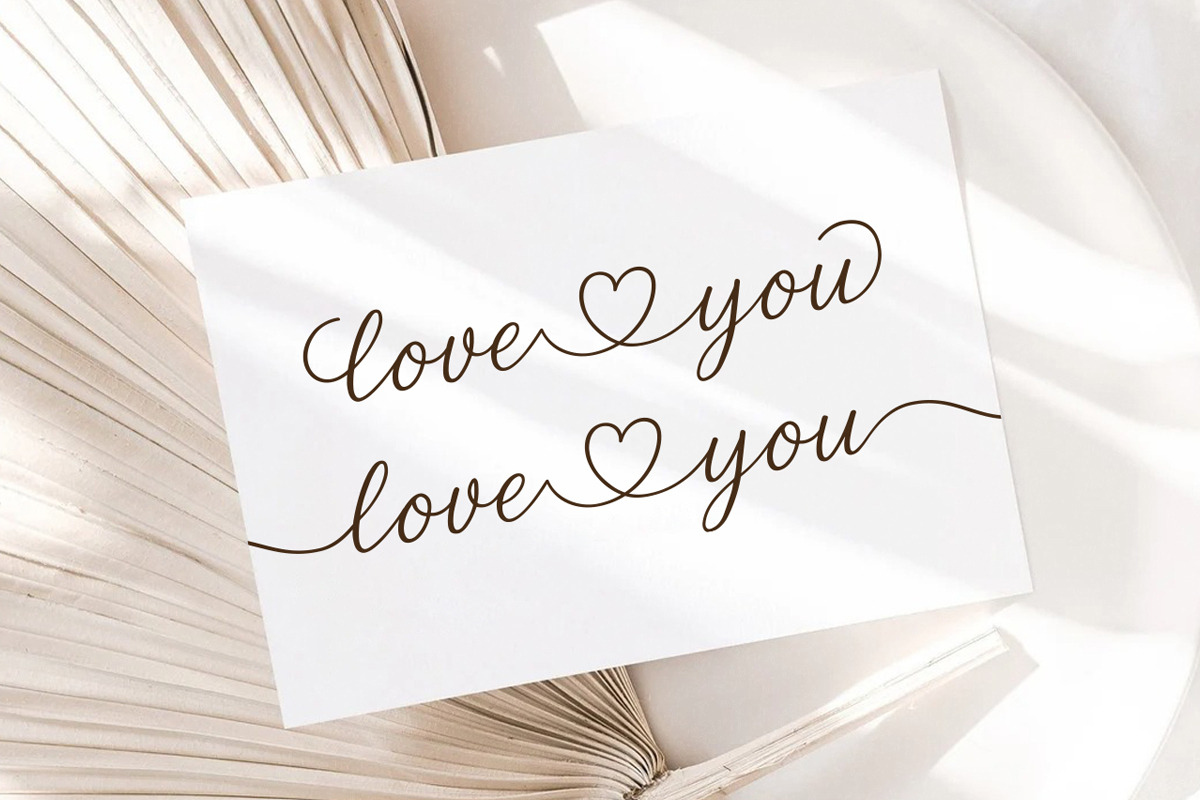 love you
love you